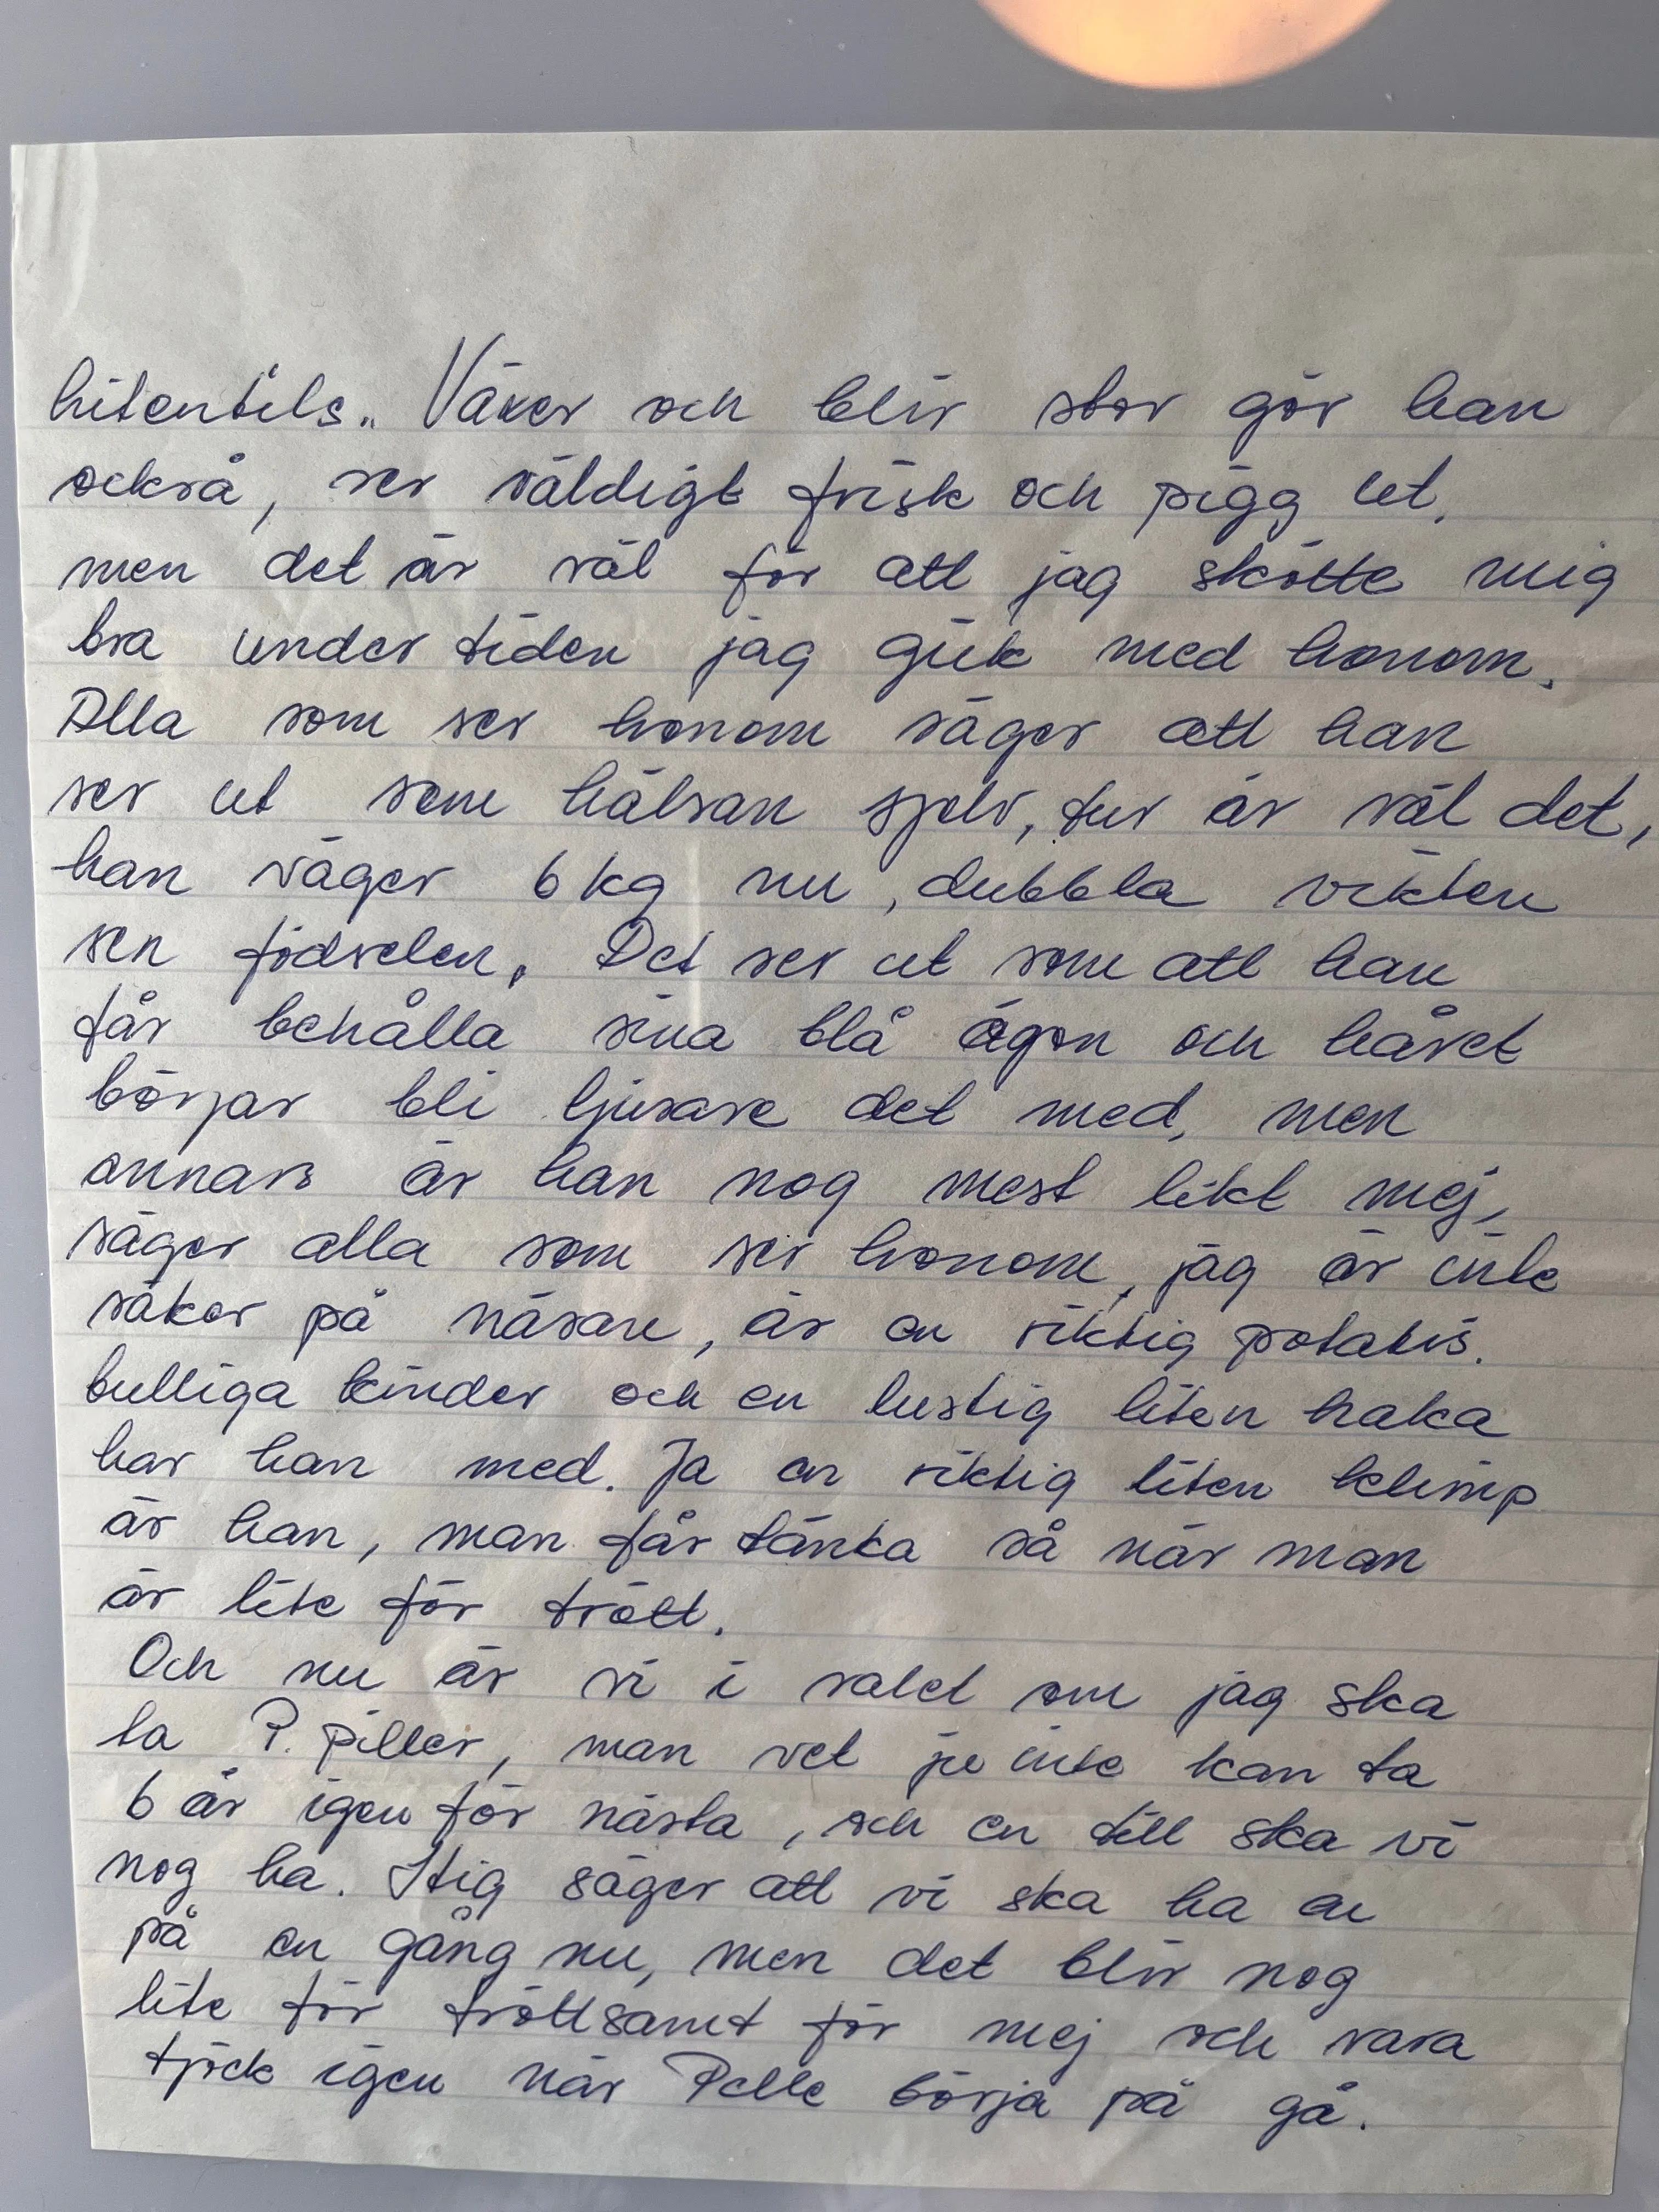 hitentils.. Växer och blir stor gör han
också, ser väldigt frisk och pigg ut,
men det är väl för att jag skötte mig
bra under tiden jag gick med honom.
Alla som ser honom säger att han
ser ut som hälsan sjelv, tur är väl det,
han väger 6 kg nu, dubbla vikten
sen födselen. Det ser ut som att han
får behålla sina blå ögon och håret
börjar bli ljusare det med, men
annars är han nog mest likt mej,
säger alla som ser honom, jag är inte
säker på näsan, är en riktig potatis.
bulliga kinder och en lustig liten haka
har han med. Ja en riktig liten klimp
är han, man får tänka så när man
är lite för trött.
Och nu är vi i valet om jag ska
ta P. piller, man vet ju inte kan ta
6 år igen för nästa, och en till ska vi
nog ha. Stig säger att vi ska ha en
på en gång nu, men det blir nog
lite för tröttsamt för mej och vara
tjock igen när Pelle börja på gå.